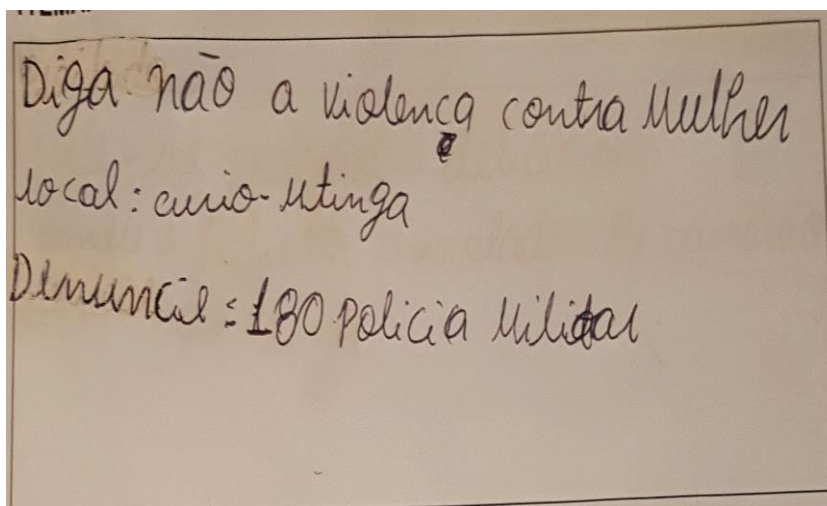 Diga não a violença contra Mulher
local: curio-Utinga
Denuncie: 180 policia Militar